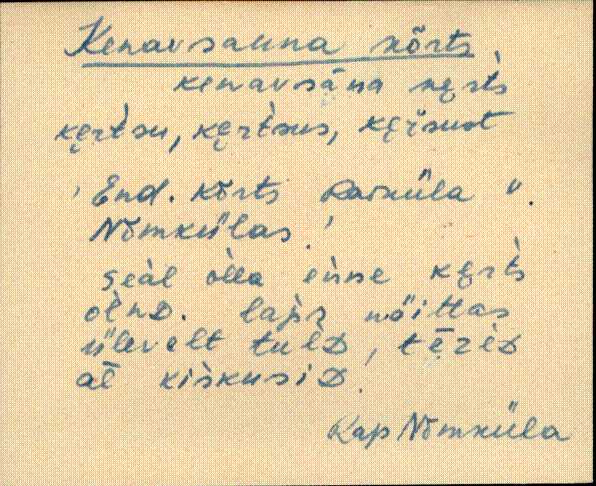 Kenavsauna kõrts,
kenavsāna kȩrt̀s
kȩrt̀su, kȩrt̀sus, kȩr̀sust
'End. kõrts Raiküla v.
Nõmkülas.'
seàl òlla eǹne kȩrt̀s
olnD. laps nǟittas
ülevelt tulD, tērèD
al kiskusiD.
Rap Nõmküla